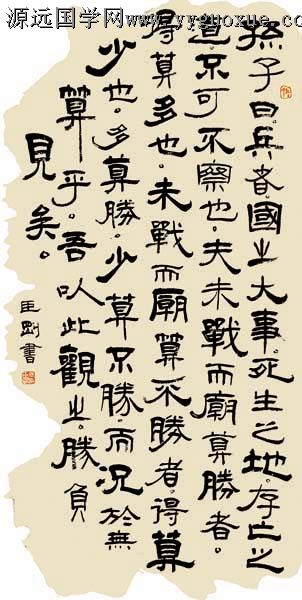 源远国学网www.yyguoxue.com
孫子曰。兵者。國之大事。死生之地。存亡之
道。不可不察也。夫未戰而廟算勝者。
得算多也。未戰而廟算不勝者。得算
少也。多算勝。少算不勝。而況於無
算乎。吾以此觀之。勝負
見矣。
王剛書